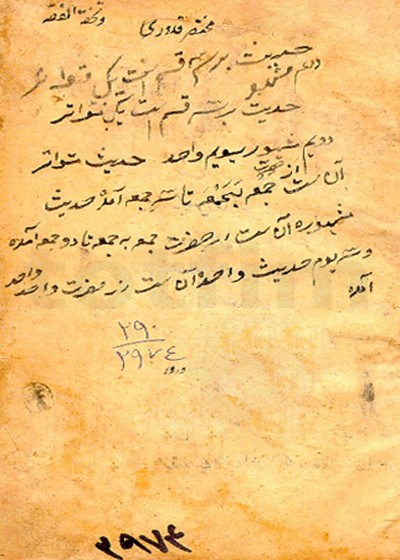 مختصر قدوری و تحفة الفقه
حدیث بر سه قسم است یکی متواتر
دویم مشهور
حدیث بر سه قسم است یکی متواتر
دویم مشهور سویم واحد حدیث متواتر
آن ست از حضرت جمع بجمع تا سه جمع آمده حدیث
مشهوره آن ست از حضرت جمع به جمع تا دو جمع آمده
و سه یوم حدیث واحده آن ست از حضرت واحد واحد
آمده
۲۹۰
۲۹۷۴
ورود
۲۹۷۴